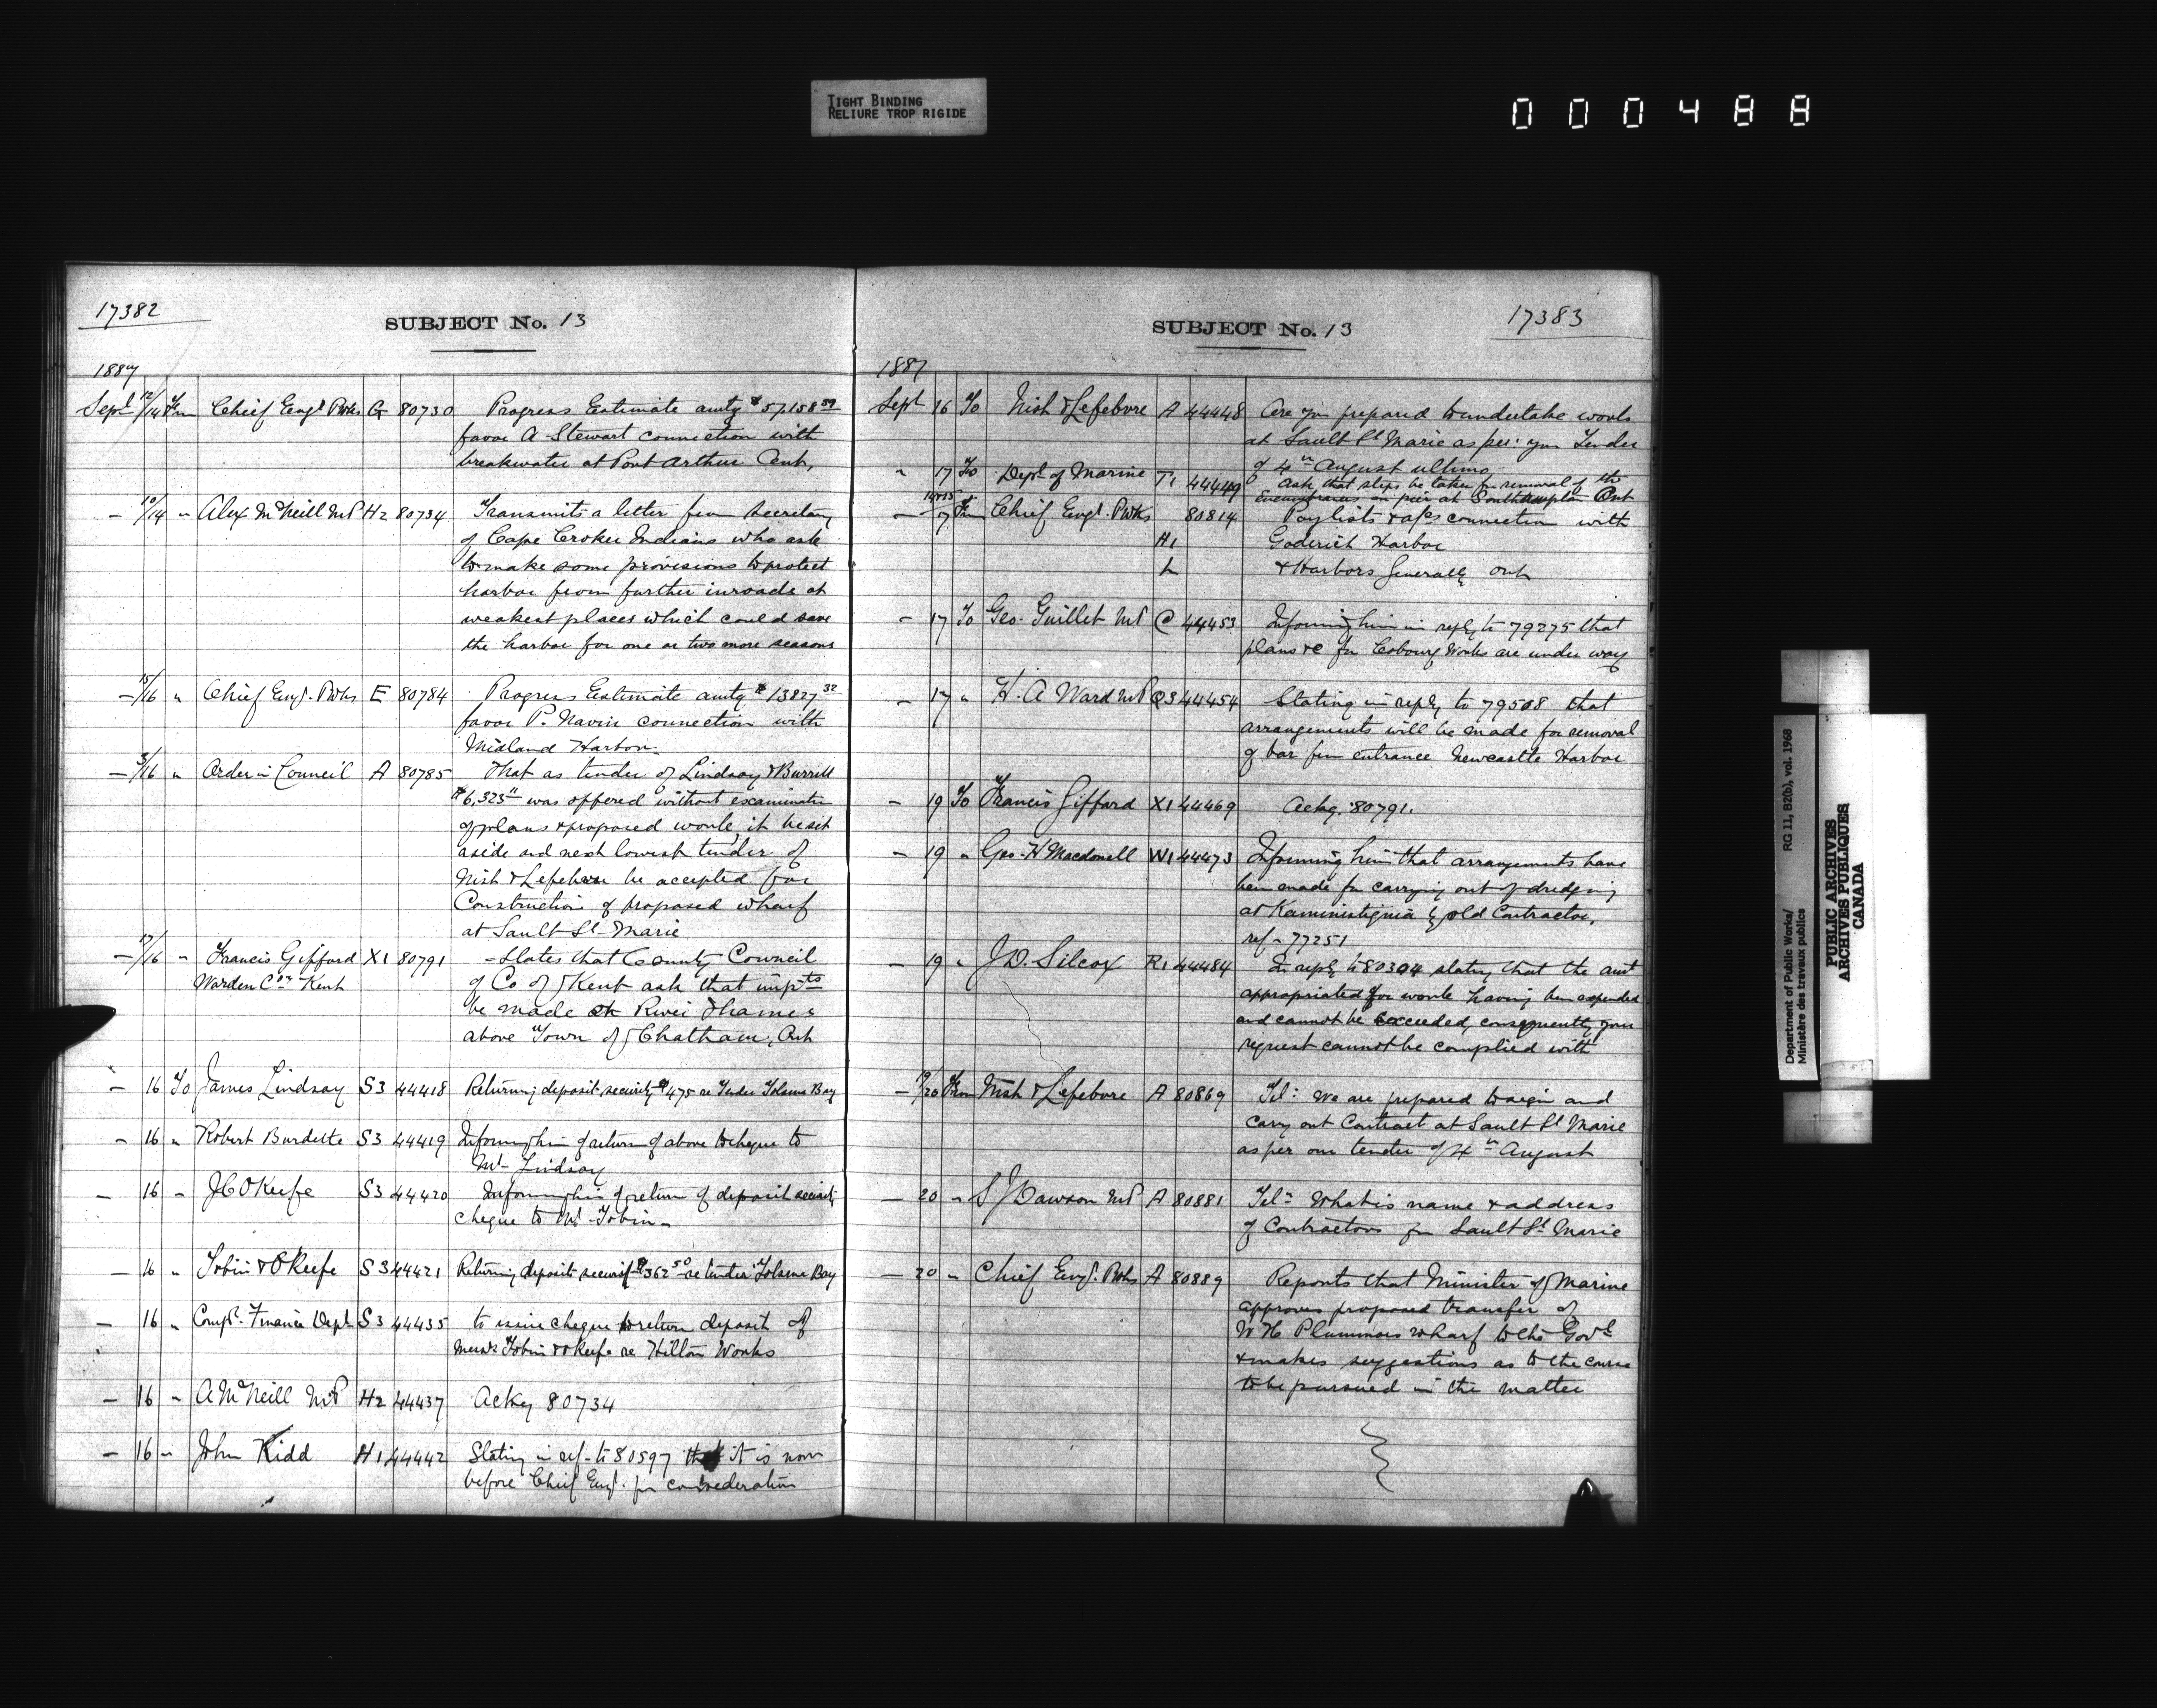 TIGHT BINDING
RELIURE TROP RIGIDE
000488
17382
SUBJECT No. 13
1887
Sept 12/14 Fm Chief Engr Pwks G 80730 Progress Estimate amtg $57,158.59
favor A Stewart connection with
breakwater at Port Arthur Ont,
— 10/14 " Alex McNeill MP H2 80734 Transmits a letter from secretary
of Cape Croker Indians who ask
to make some provisions to protect
harbor from further inroads at
weakest places which could save
the harbor for one or two more seasons
— 15/16 " Chief Engr. Pwks E 80784 Progress Estimate amtg $13827.32
favor P. Navin connection with
Midland Harbor
— /16 " Order in Council A 80785 That as tender of Lindsay & Burritt
$6,323 " was offered without examination
of plans & proposed work, it be set
aside and next lowest tender of
Nish & Lefebvre be accepted for
Construction of proposed wharf
at Sault St Marie
— /16 " Francis Gifford X1 80791 — States that County Council
Warden Co. Kent of Co of Kent ask that impts
be made at River Thames
above Town of Chatham, Ont
— 16 To James Lindsay S3 44418 Returning deposit security $475 re Tender Tolsma Bay
— 16 " Robert Burdette S3 44419 Informing him of return of above cheque to
Mr Lindsay
— 16 " J C O'Keefe S3 44420 Informing him of return of deposit security
cheque to Mr Tobin —
— 16 " Tobin & O'Keefe S3 44421 Returning deposit security $362.50 re tender Tolsma Bay
— 16 " Compt. Finance Dept S3 44435 to issue cheque to return deposit of
Messrs Tobin & O'Keefe re Hilton Works
— 16 " A McNeill MP H2 44437 Ackg 80734
— 16 " John Kidd H1 44442 Stating in ref. to 80597 that it is now
before Chief Engr. for consideration
17383
SUBJECT No. 13
1887
Sept 16 To Nish & Lefebvre A 44448 Are you prepared to undertake works
at Sault St Marie as per: your Tender
of 4th August ultimo
" 17 To Dept of Marine T1 44449 Ask that steps be taken for removal of the
encumbrances on pier at Southampton Ont
— 14&15/17 Fm Chief Engr. Pwks 80814 Paylists & a/cs connection with
H1 Goderich Harbor
L & Harbors Generally Ont
— 17 To Geo. Guillet MP C 44453 Informing him in reply to 79275 that
plans &c for Cobourg Works are under way
— 17 " H. A Ward MP Q3 44454 Stating in reply to 79508 that
arrangements will be made for removal
of bar from entrance Newcastle Harbor
— 19 To Francis Gifford X1 44469 Ackg. 80791.
— 19 " Geo. H Macdonell W1 44473 Informing him that arrangements have
been made for carrying out of dredging
at Kaministiquia by old Contractor,
ref — 77251
— 19 " J D. Silcox R1 44484 In reply to 80304 stating that the amt
appropriated for work having been expended
and cannot be exceeded, consequently your
request cannot be complied with
— 19/20 From Nish & Lefebvre A 80869 Tel: We are prepared to sign and
carry out Contract at Sault St Marie
as per our tender of 4th August
— 20 " S J Dawson MP A 80881 Tel: What is name & address
of Contractors for Sault St Marie
— 20 " Chief Engr. Pwks A 80889 Reports that Minister of Marine
approves proposed transfer of
W H Plummers wharf to the Govt
& makes suggestions as to the course
to be pursued in the matter
Department of Public Works/ RG 11, B2(b), vol. 1968
Ministère des travaux publics
PUBLIC ARCHIVES
ARCHIVES PUBLIQUES
CANADA